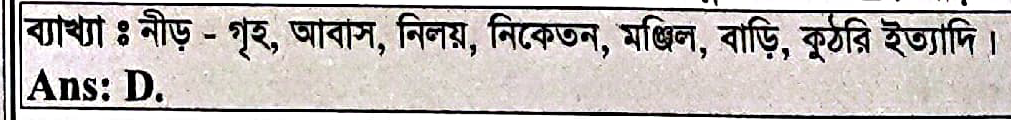 ব্যাখ্যা ঃ নীড় - গৃহ, আবাস, নিলয়, নিকেতন, মঞ্জিল, বাড়ি, কুঠরি ইত্যাদি।
Ans: D.